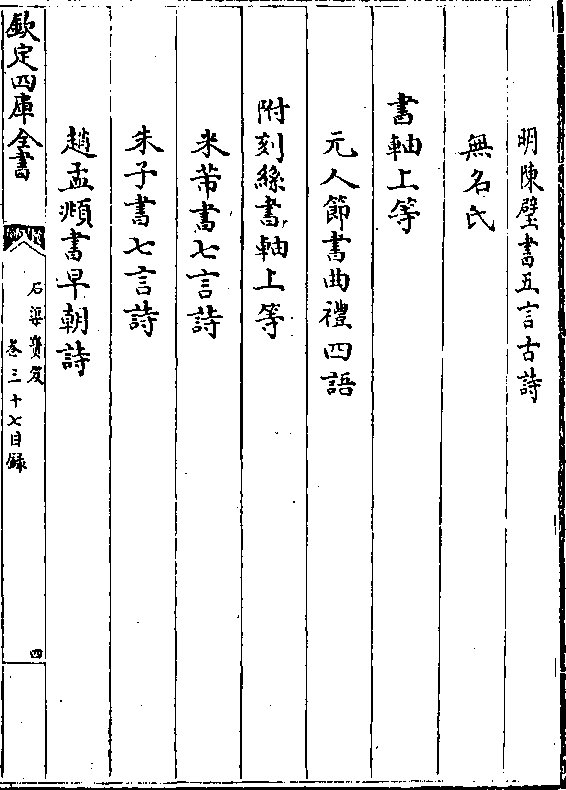 明陳壁書五言古詩
無名氏
書軸上等
元人節書曲禮四語
附刻絲書軸上等
米芾書七言詩
朱子書七言詩
趙孟頫書早朝詩
欽定四庫全書
石渠寳笈
卷三十七目録
四